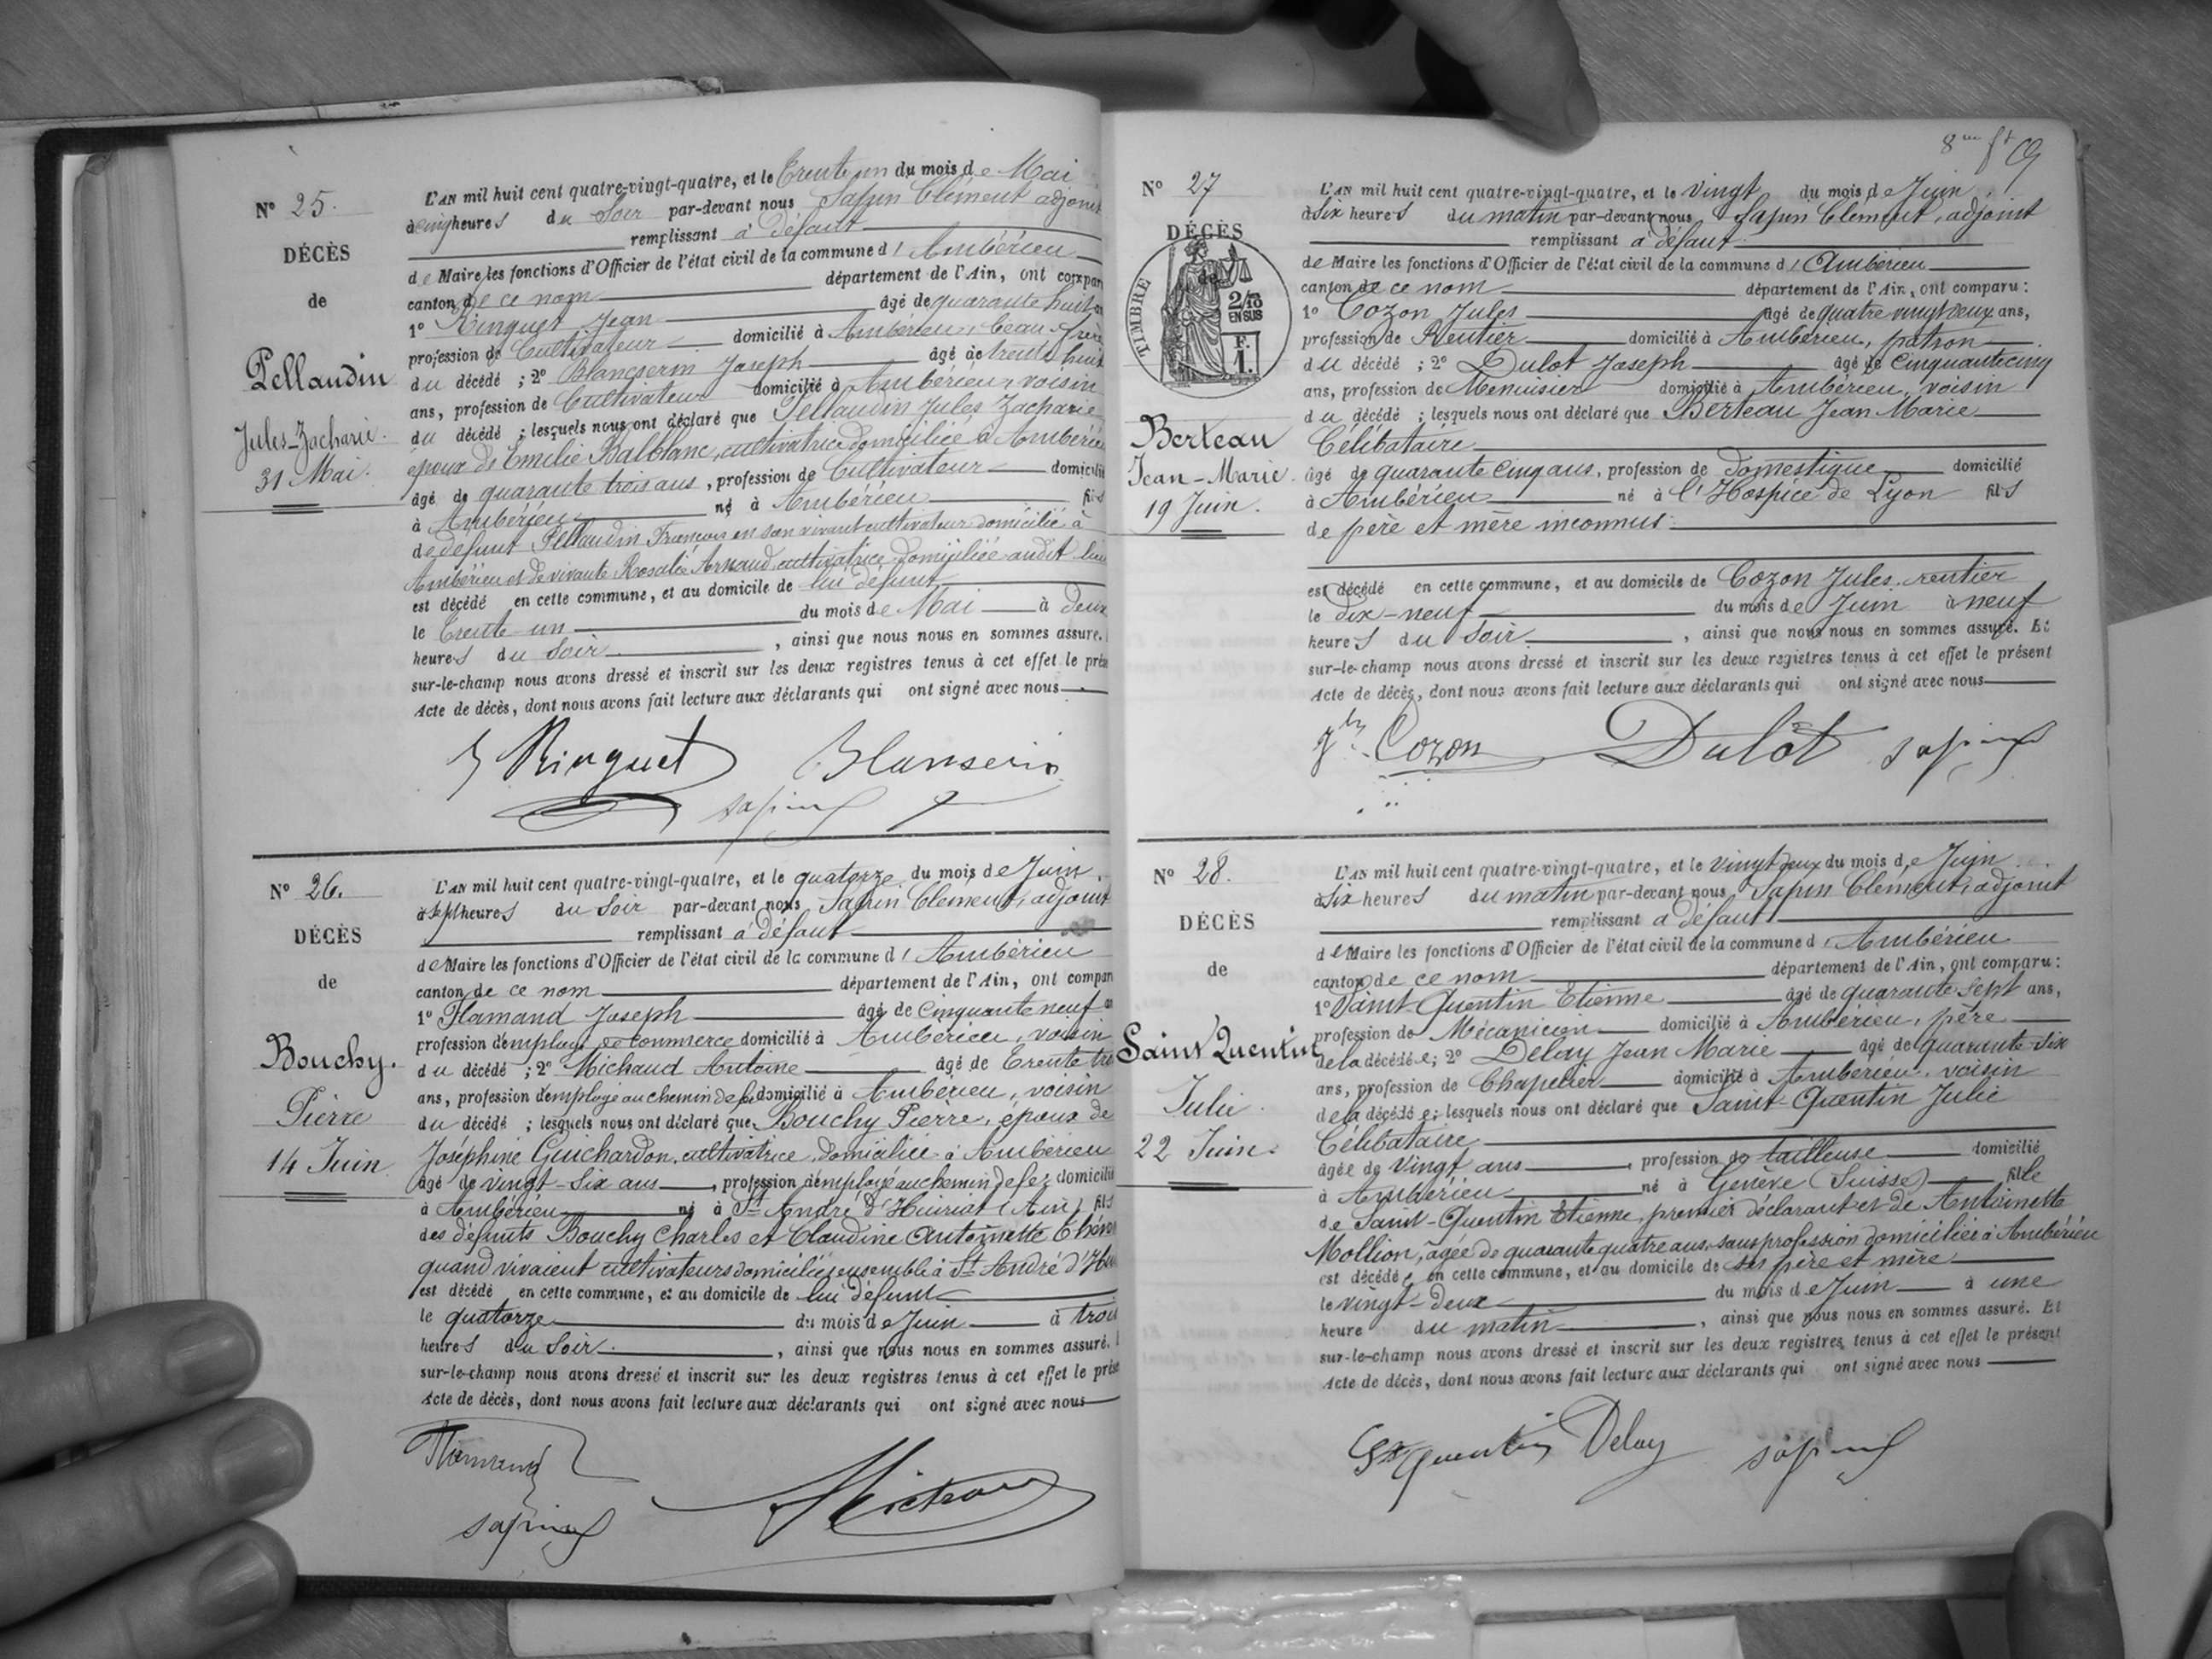 N° 25.
DÉCÈS
de
Pellaudin
Jules-Zacharie.
31 Mai.
L'AN mil huit cent quatre-vingt-quatre, et le Trente un du mois de Mai
à cinq heures du Soir par-devant nous Sapin Clément adjoint
remplissant à défaut
de Maire les fonctions d'Officier de l'état civil de la commune d'Ambérieu
canton de ce nom département de l'Ain, ont compar
1° Ringuet Jean âgé de quarante huit an
profession de Cultivateur domicilié à Ambérieu, beau-frère
du décédé ; 2° Blancserin Joseph âgé de trente huit
ans, profession de Cultivateur domicilié à Ambérieu, voisin
du décédé ; lesquels nous ont déclaré que Pellaudin Jules Zacharie
époux de Emélie Balblanc, cultivatrice domiciliée à Ambérieu
âgé de quarante trois ans, profession de Cultivateur domicilié
à Ambérieu né à Ambérieu fils
de défunt Pellaudin François en son vivant cultivateur domicilié à
Ambérieu et de vivante Rosalie Arnaud cultivatrice domiciliée audit lieu
est décédé en cette commune, et au domicile de lui défunt
le Trente-un du mois de Mai à deux
heures du Soir, ainsi que nous nous en sommes assuré.
sur-le-champ nous avons dressé et inscrit sur les deux registres tenus à cet effet le prése
Acte de décès, dont nous avons fait lecture aux déclarants qui ont signé avec nous
J Ringuet Blanserin
Sapin
N° 26.
DÉCÈS
de
Bouchy.
Pierre
14 Juin
L'AN mil huit cent quatre-vingt-quatre, et le quatorze du mois de Juin.
à sept heures du Soir par-devant nous Sapin Clément, adjoint
remplissant à défaut
de Maire les fonctions d'Officier de l'état civil de la commune d'Ambérieu
canton de ce nom département de l'Ain, ont compar
1° Flamand Joseph âgé de Cinquante neuf an
profession d'employé de commerce domicilié à Ambérieu, voisin
du décédé ; 2° Michaud Antoine âgé de Trente-
ans, profession d'employé au chemin de fer domicilié à Ambérieu, voisin
du décédé ; lesquels nous ont déclaré que Bouchy Pierre, époux de
Joséphine Guichardon, cultivatrice, domiciliée à Ambérieu
âgé de vingt-six ans, profession d'employé au chemin de fer domicilié
à Ambérieu né à St André d'Huiriat (Ain) fils
des défunts Bouchy Charles et Claudine Antoinette
quand vivaient cultivateurs domiciliés ensemble à St André d'Hu
est décédé en cette commune, et au domicile de lui défunt
le quatorze du mois de Juin à trois
heures du Soir, ainsi que nous nous en sommes assuré.
sur-le-champ nous avons dressé et inscrit sur les deux registres tenus à cet effet le prése
Acte de décès, dont nous avons fait lecture aux déclarants qui ont signé avec nous
Flamand
Sapin
8me ft
N° 27
DÉCÈS
de
TIMBRE
2/10
EN SUS
F.
1.
Berteau
Jean-Marie.
19 Juin.
L'AN mil huit cent quatre-vingt-quatre, et le vingt du mois de Juin
à Six heures du matin par-devant nous Sapin Clément, adjoint
remplissant à défaut
de Maire les fonctions d'Officier de l'état civil de la commune d'Ambérieu
canton de ce nom département de l'Ain, ont comparu :
1° Cozon Jules âgé de quatre vingt deux ans,
profession de Rentier domicilié à Ambérieu, patron
du décédé ; 2° Dulot Joseph âgé de Cinquante cinq
ans, profession de Menuisier domicilié à Ambérieu, voisin
du décédé ; lesquels nous ont déclaré que Berteau Jean Marie
Célibataire
âgé de quarante cinq ans, profession de domestique domicilié
à Ambérieu né à l'Hospice de Lyon fils
de père et mère inconnus
est décédé en cette commune, et au domicile de Cozon Jules, rentier
le dix-neuf du mois de Juin à neuf
heures du Soir, ainsi que nous nous en sommes assuré. Et
sur-le-champ nous avons dressé et inscrit sur les deux registres tenus à cet effet le présent
Acte de décès, dont nous avons fait lecture aux déclarants qui ont signé avec nous
Cozon Dulôt Sapin
N° 28.
DÉCÈS
de
Saint Quentin
Julie.
22 Juin.
L'AN mil huit cent quatre-vingt-quatre, et le vingt deux du mois de Juin
à Six heures du matin par-devant nous Sapin Clément, adjoint
remplissant à défaut
de Maire les fonctions d'Officier de l'état civil de la commune d'Ambérieu
canton de ce nom département de l'Ain, ont comparu :
1° Saint-Quentin Etienne âgé de quarante sept ans,
profession de Mécanicien domicilié à Ambérieu, père
de la décédée ; 2° Delay Jean Marie âgé de quarante-six
ans, profession de Chapelier domicilié à Ambérieu, voisin
de la décédée ; lesquels nous ont déclaré que Saint-Quentin Julie
Célibataire
âgée de Vingt ans, profession de tailleuse domicilié
à Ambérieu né à Genève (Suisse) fille
de Saint-Quentin Etienne, premier déclarant et de Antoinette
Mollion, âgée de quarante quatre ans, sans profession domiciliés à Ambérieu
est décédée en cette commune, et au domicile de ses père et mère
le vingt-deux du mois de Juin à une
heure du matin, ainsi que nous nous en sommes assuré. Et
sur-le-champ nous avons dressé et inscrit sur les deux registres tenus à cet effet le présent
Acte de décès, dont nous avons fait lecture aux déclarants qui ont signé avec nous
St quentin Delay Sapin